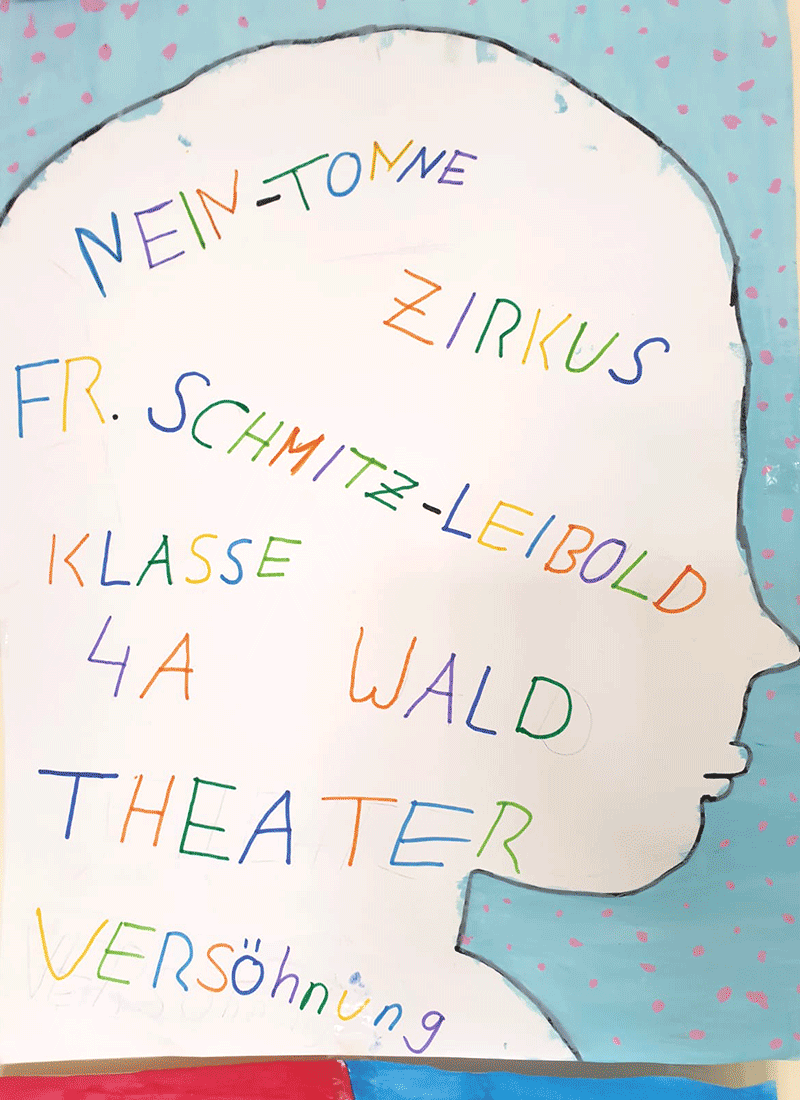 NEIN-TONNE
ZIRKUS
FR. SCHMITZ-LEIBOLD
KLASSE
4A WALD
THEATER
VERSöhnung